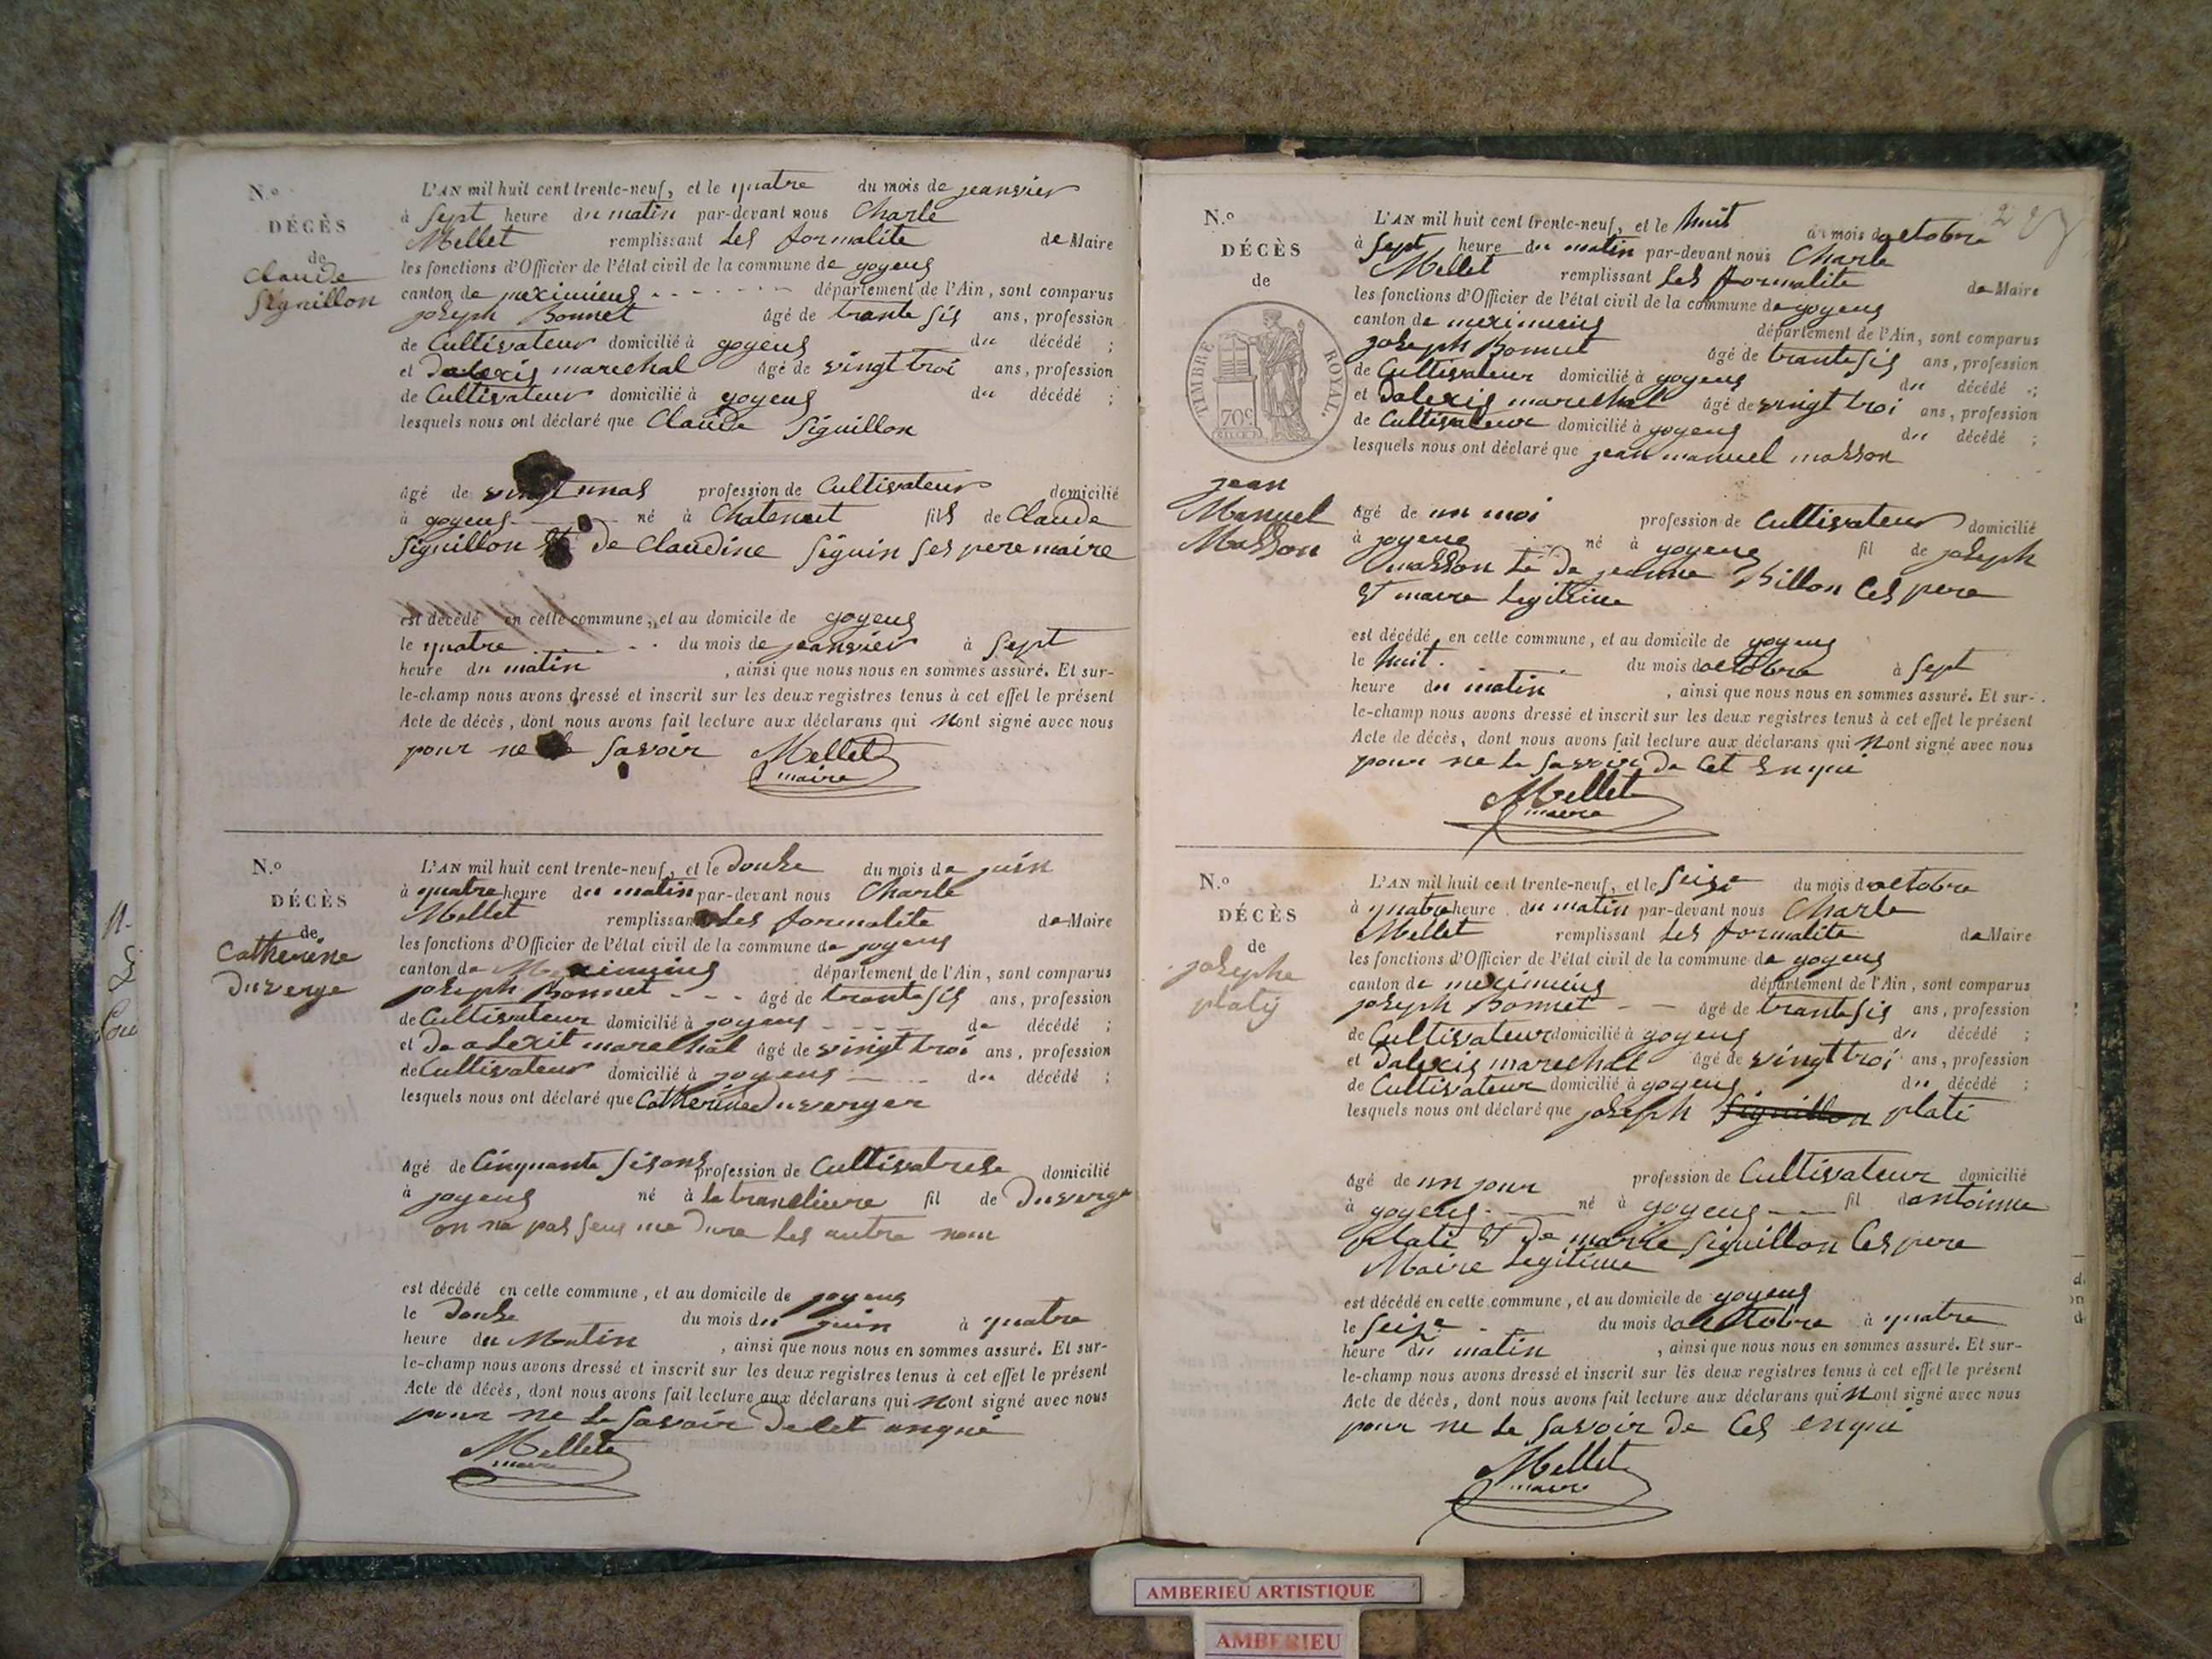 N.o
DÉCÈS
de
Claude
Siguillon
L'AN mil huit cent trente-neuf, et le quatre du mois de jeanvier
à Sept heure du matin par-devant nous Charle
Mellet remplissant Les formalite de Maire
les fonctions d'Officier de l'état civil de la commune de goyeus
canton de meximieus département de l'Ain, sont comparus
joseph Bonnet âgé de trante sis ans, profession
de Cultivateur domicilié à goyeus du décédé ;
et Dalexis marechal âgé de vingt troi ans, profession
de Cultivateur domicilié à goyeus du décédé ;
lesquels nous ont déclaré que Claude Siguillon
âgé de vingt unas profession de Cultivateur domicilié
à goyeus né à Chatenait fils de Claude
Siguillon Et de Claudine Siguin Ses pere maire
est décédé en cette commune, et au domicile de goyeus
le quatre du mois de jeanvier à Sept
heure du matin , ainsi que nous nous en sommes assuré. Et sur-
le-champ nous avons dressé et inscrit sur les deux registres tenus à cet effet le présent
Acte de décès, dont nous avons fait lecture aux déclarans qui Nont signé avec nous
pour ne Savoir Mellet
maire
N.o
DÉCÈS
de
Catherine
Duverge
L'AN mil huit cent trente-neuf, et le Douse du mois de juin
à quatre heure du matin par-devant nous Charle
Mellet remplissant Les formalite de Maire
les fonctions d'Officier de l'état civil de la commune de joyeus
canton de Meximieus département de l'Ain, sont comparus
joseph Bonnet âgé de trante sis ans, profession
de Cultivateur domicilié à joyeus de décédé ;
et De alexit marechal âgé de vingt troi ans, profession
de Cultivateur domicilié à joyeus du décédé ;
lesquels nous ont déclaré que Catherine Duverger
âgé de Cinquante sis ans profession de Cultivatrise domicilié
à joyeus né à la trancliere fil de Duverge
on ne pas Seus me Dire Les autre nom
est décédé en cette commune, et au domicile de joyeus
le Douse du mois du juin à quatre
heure du Matin , ainsi que nous nous en sommes assuré. Et sur-
le-champ nous avons dressé et inscrit sur les deux registres tenus à cet effet le présent
Acte de décès, dont nous avons fait lecture aux déclarans qui Nont signé avec nous
pour ne Le Savoir De Cet anqui
Mellet
maire
N.o
DÉCÈS
de
TIMBRE ROYAL.
70c
jean
Manuel
Masson
L'AN mil huit cent trente-neuf, et le huit du mois doctobre
à Sept heure du matin par-devant nous Charle
Mellet remplissant Les formalite de Maire
les fonctions d'Officier de l'état civil de la commune de goyeus
canton de meximieus département de l'Ain, sont comparus
joseph Bonnet âgé de trante sis ans, profession
de Cultivateur domicilié à goyeus du décédé ;
et Dalexis marechal âgé de vingt troi ans, profession
de Cultivateur domicilié à goyeus du décédé ;
lesquels nous ont déclaré que jean manuel masson
âgé de un moi profession de Cultivateur domicilié
à joyeus né à goyeus fil de joseph
masson Et De jeanne Billon Ces pere
Et maire Legitime
est décédé en cette commune, et au domicile de goyeus
le huit. du mois doctobre à Sept
heure du matin , ainsi que nous nous en sommes assuré. Et sur-
le-champ nous avons dressé et inscrit sur les deux registres tenus à cet effet le présent
Acte de décès, dont nous avons fait lecture aux déclarans qui Nont signé avec nous
pour ne Le Savoir De Cet Enqui
Mellet
maire
N.o
DÉCÈS
de
josephe
platy
L'AN mil huit cent trente-neuf, et le Seise du mois doctobre
à quatre heure du matin par-devant nous Charle
Mellet remplissant Les formalite de Maire
les fonctions d'Officier de l'état civil de la commune de goyeus
canton de meximieus département de l'Ain, sont comparus
joseph Bonnet âgé de trante sis ans, profession
de Cultivateur domicilié à goyeus du décédé ;
et Dalexis marechal âgé de vingt troi ans, profession
de Cultivateur domicilié à goyeus du décédé ;
lesquels nous ont déclaré que joseph Siguillon plati
âgé de un jour profession de Cultivateur domicilié
à goyeus né à goyeus fil dantoinne
plati Et De marie Siguillon Ces pere
Maire Legitime
est décédé en cette commune, et au domicile de goyeus
le Seise du mois doctobre à quatre
heure du matin , ainsi que nous nous en sommes assuré. Et sur-
le-champ nous avons dressé et inscrit sur les deux registres tenus à cet effet le présent
Acte de décès, dont nous avons fait lecture aux déclarans qui Nont signé avec nous
pour ne Le Savoir De Ces enqui
Mellet
maire
AMBERIEU ARTISTIQUE
AMBERIEU